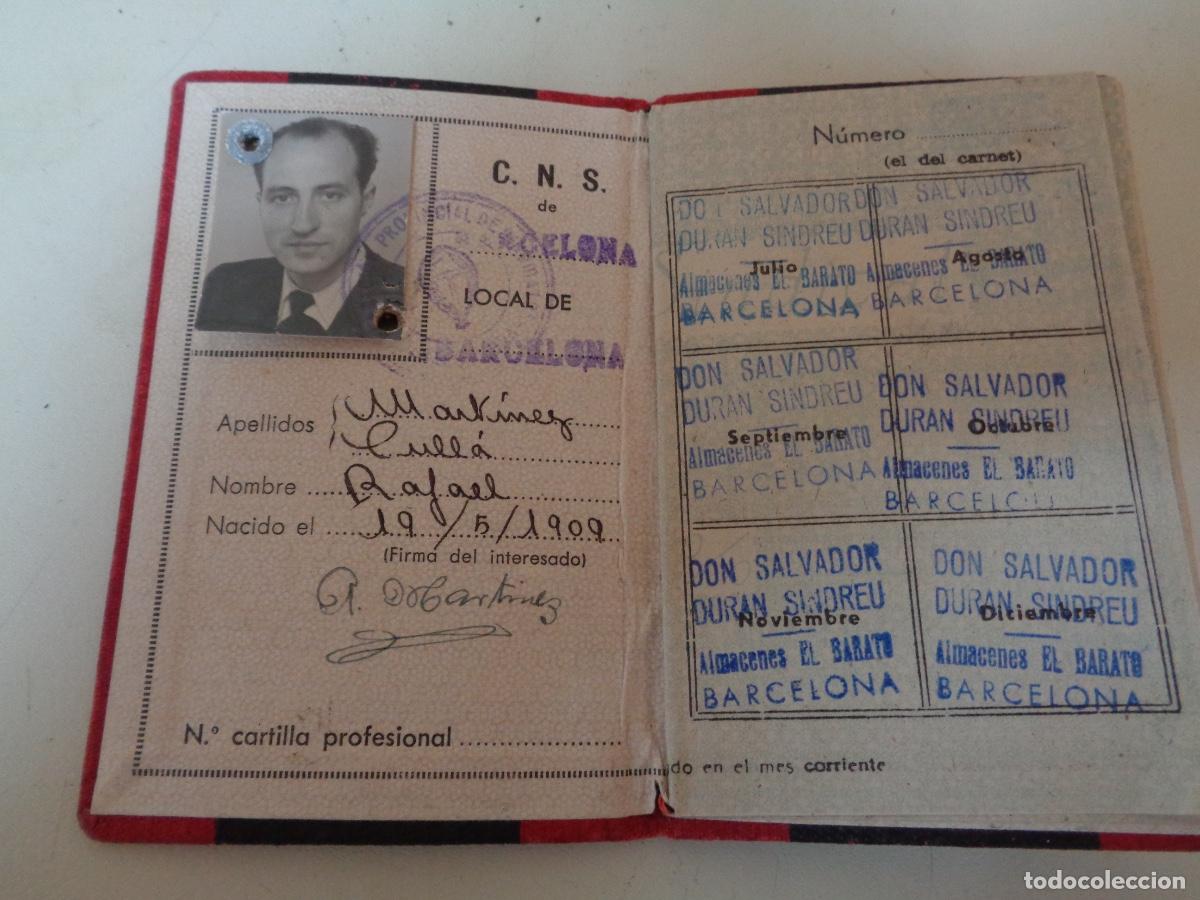 C. N. S.
de
BARCELONA
LOCAL DE
BARCELONA
PROVINCIAL DE
Apellidos Martínez
Cullá
Nombre Rafael
Nacido el 19/5/1909
(Firma del interesado)
R. Martinez
N.º cartilla profesional
Número
(el del carnet)
DON SALVADOR
DURAN SINDREU
Julio
Almacenes EL BARATO
BARCELONA
DON SALVADOR
DURAN SINDREU
Agosto
Almacenes EL BARATO
BARCELONA
DON SALVADOR
DURAN SINDREU
Septiembre
Almacenes EL BARATO
BARCELONA
DON SALVADOR
DURAN SINDREU
Octubre
Almacenes EL BARATO
BARCELO
DON SALVADOR
DURAN SINDREU
Noviembre
Almacenes EL BARATO
BARCELONA
DON SALVADOR
DURAN SINDREU
Diciembre
Almacenes EL BARATO
BARCELONA
do en el mes corriente
todocoleccion